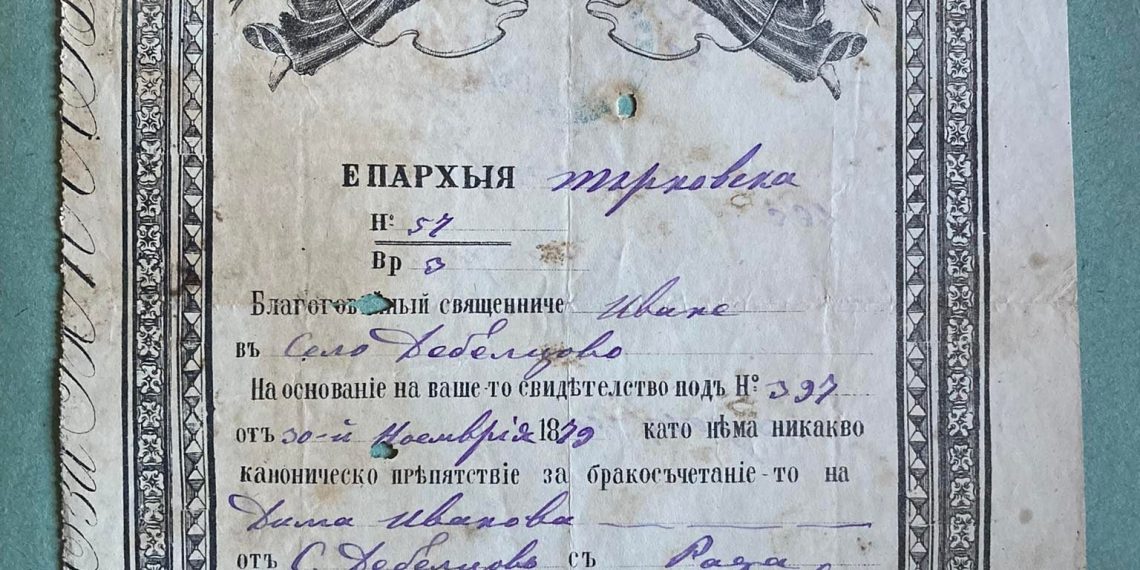 ЕПАРХЫЯ Търновска
№ 57
Вр 3
Благоговѣйный священниче Иване
въ Село Дебелцово
На основаніе на ваше-то свидѣтелство подъ № 397
отъ 30-й Ноемврія 1879 като нѣма никакво
каноническо прѣпятствіе за бракосъчетаніе-то на
Дима Иванова
отъ С. Дебелцовъ съ Рада